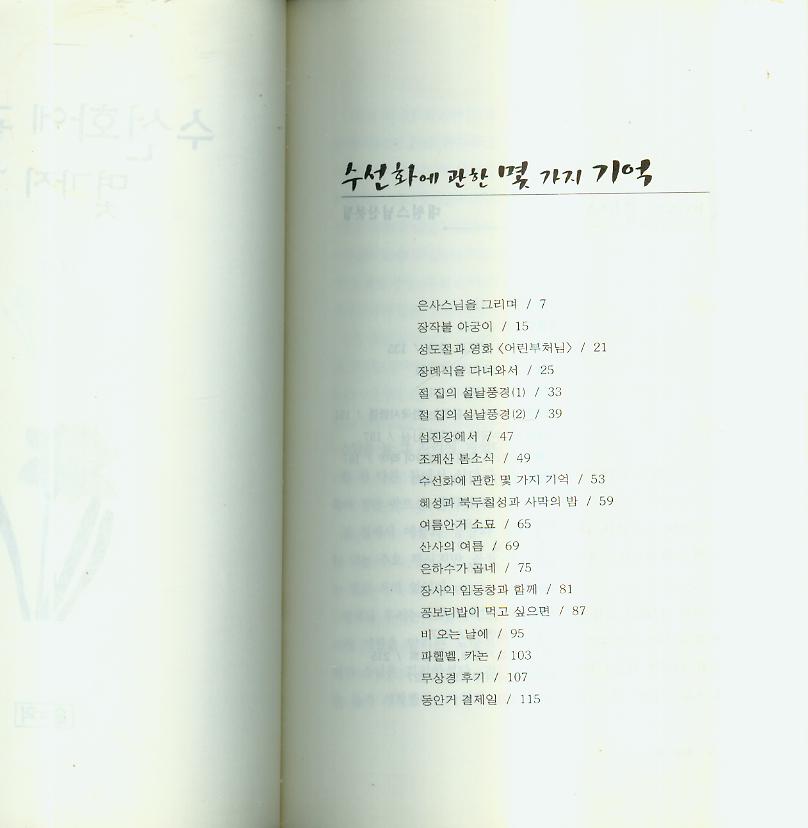 수선화에 관한 몇 가지 기억
은사스님을 그리며 / 7
장작불 아궁이 / 15
성도절과 영화 〈어린부처님〉 / 21
장례식을 다녀와서 / 25
절 집의 설날풍경(1) / 33
절 집의 설날풍경(2) / 39
섬진강에서 / 47
조계산 봄소식 / 49
수선화에 관한 몇 가지 기억 / 53
혜성과 북두칠성과 사막의 밤 / 59
여름안거 소묘 / 65
산사의 여름 / 69
은하수가 곱네 / 75
장사익 임동창과 함께 / 81
꽁보리밥이 먹고 싶으면 / 87
비 오는 날에 / 95
파헬벨, 카논 / 103
무상경 후기 / 107
동안거 결제일 / 115